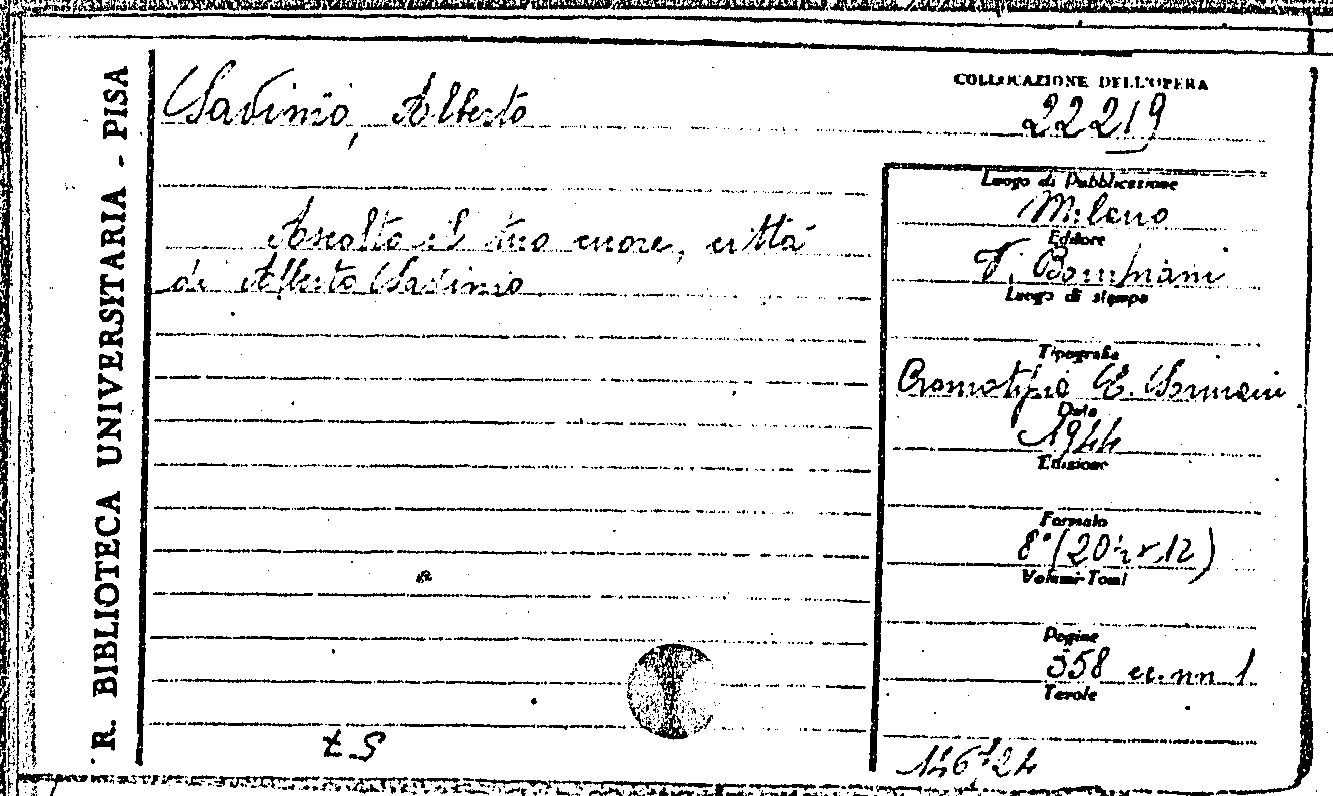 R. BIBLIOTECA UNIVERSITARIA - PISA
Savinio, Alberto
Ascolto il tuo cuore, città
di Alberto Savinio
COLLOCAZIONE DELL'OPERA
22219
Luogo di Pubblicazione
Milano
Editore
V. Bompiani
Luogo di stampa
Tipografia
Cromotipia E. Sormani
Data
1944
Edizione
Formato
8°
Volumi-Tomi
Pagine
358 cc.nn 1
Tavole